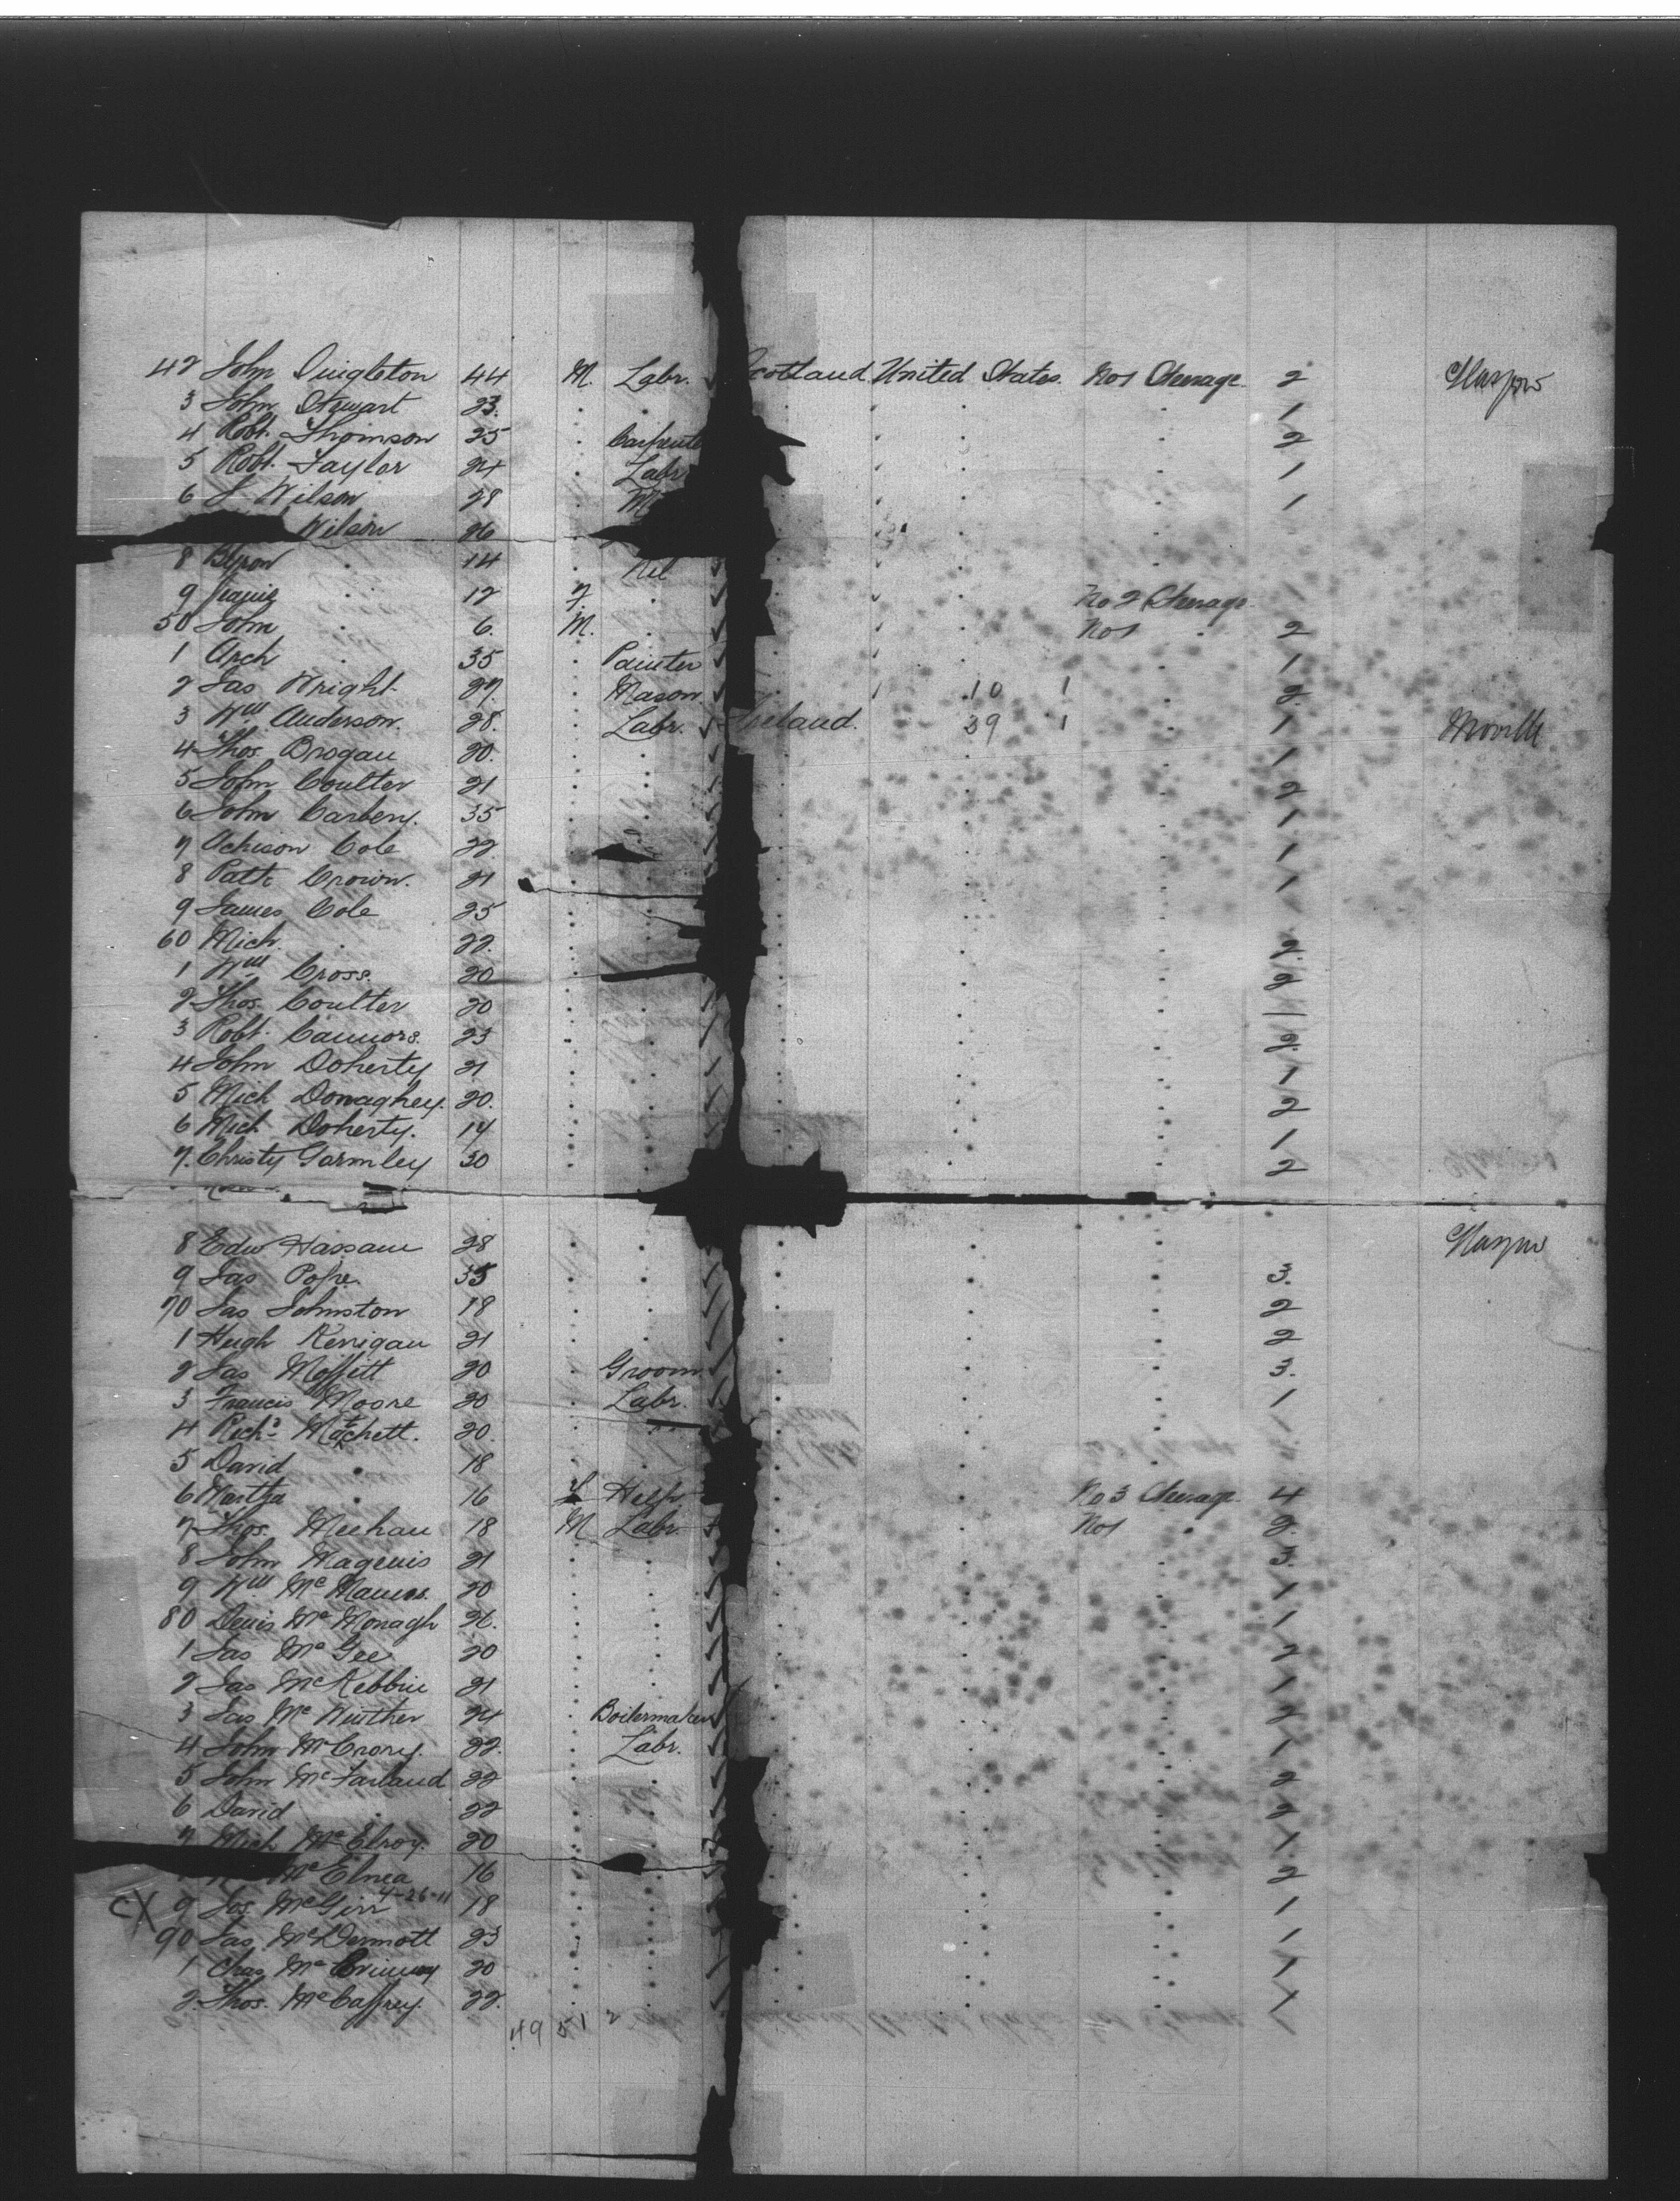 42 John Singleton 44 M. Labr. Scotland United States No 1 Steerage 2 Glasgow
3 John Stewart 23. 1
4 Robt. Thomson 25 Carpente 2
5 Robt. Taylor 24 Labr 1
6 J Wilson 28 M 1
Wilson 26
8 Byron 14 Nil
9 Jeanie 12 F. No 2 Steerage 1
50 John 6. M. No 1 2
1 Arch 35 Painter 1
2 Jas Wright 27. Mason 10 1 2.
3 Wm Anderson. 28. Labr. Ireland. 39 1 1 Moville
4 Thos. Brogan 20. 1
5 John Coulter 21 2
6 John Carbery. 35 1
7 Achison Cole 22. 1
8 Patk Crown. 21 1
9 James Cole 25
60 Mich. 22. 2.
1 Wm Cross. 20 2
2 Thos. Coulter 20 1
3 Robt. Cannors. 23 2.
4 John Doherty 21 1
5 Mich Donaghey. 20. 2
6 Mich Doherty. 14 1
7. Christy Gormley 30 2
8 Edw Hassan 28 Glasgow
9 Jas Pope. 35 3.
70 Jas Johnston 18 2
1 Hugh Kerrigan 21 2
2 Jas Moffitt 20 Groom 3.
3 Francis Moore 20 Labr. 1
4 Richd Matchett. 20. 1
5 David 18
6 Martha 16 F Help No 3 Steerage 4
7 Thos. Meehan 18 M Labr. No 1 2.
8 John Magenis 21 3.
9 Wm McManus. 20 1
80 Denis McMonagh 26. 1
1 Jas McGee 20 2
2 Jas McKebbin 21 1
3 Jas Mc 24 Boilermaker 2
4 John McCrory. 22. Labr. 1
5 John McFarland 22 2
6 David 22 2
7 Mich McElroy. 20 1.
McElnea 16 2
CX 9 Jos. McGirr 4-26-11 18 1
90 Jas. McDermott 23 1
1 Chas Mc 20 1
2. Thos. McCaffrey. 22. 1
49 51 2